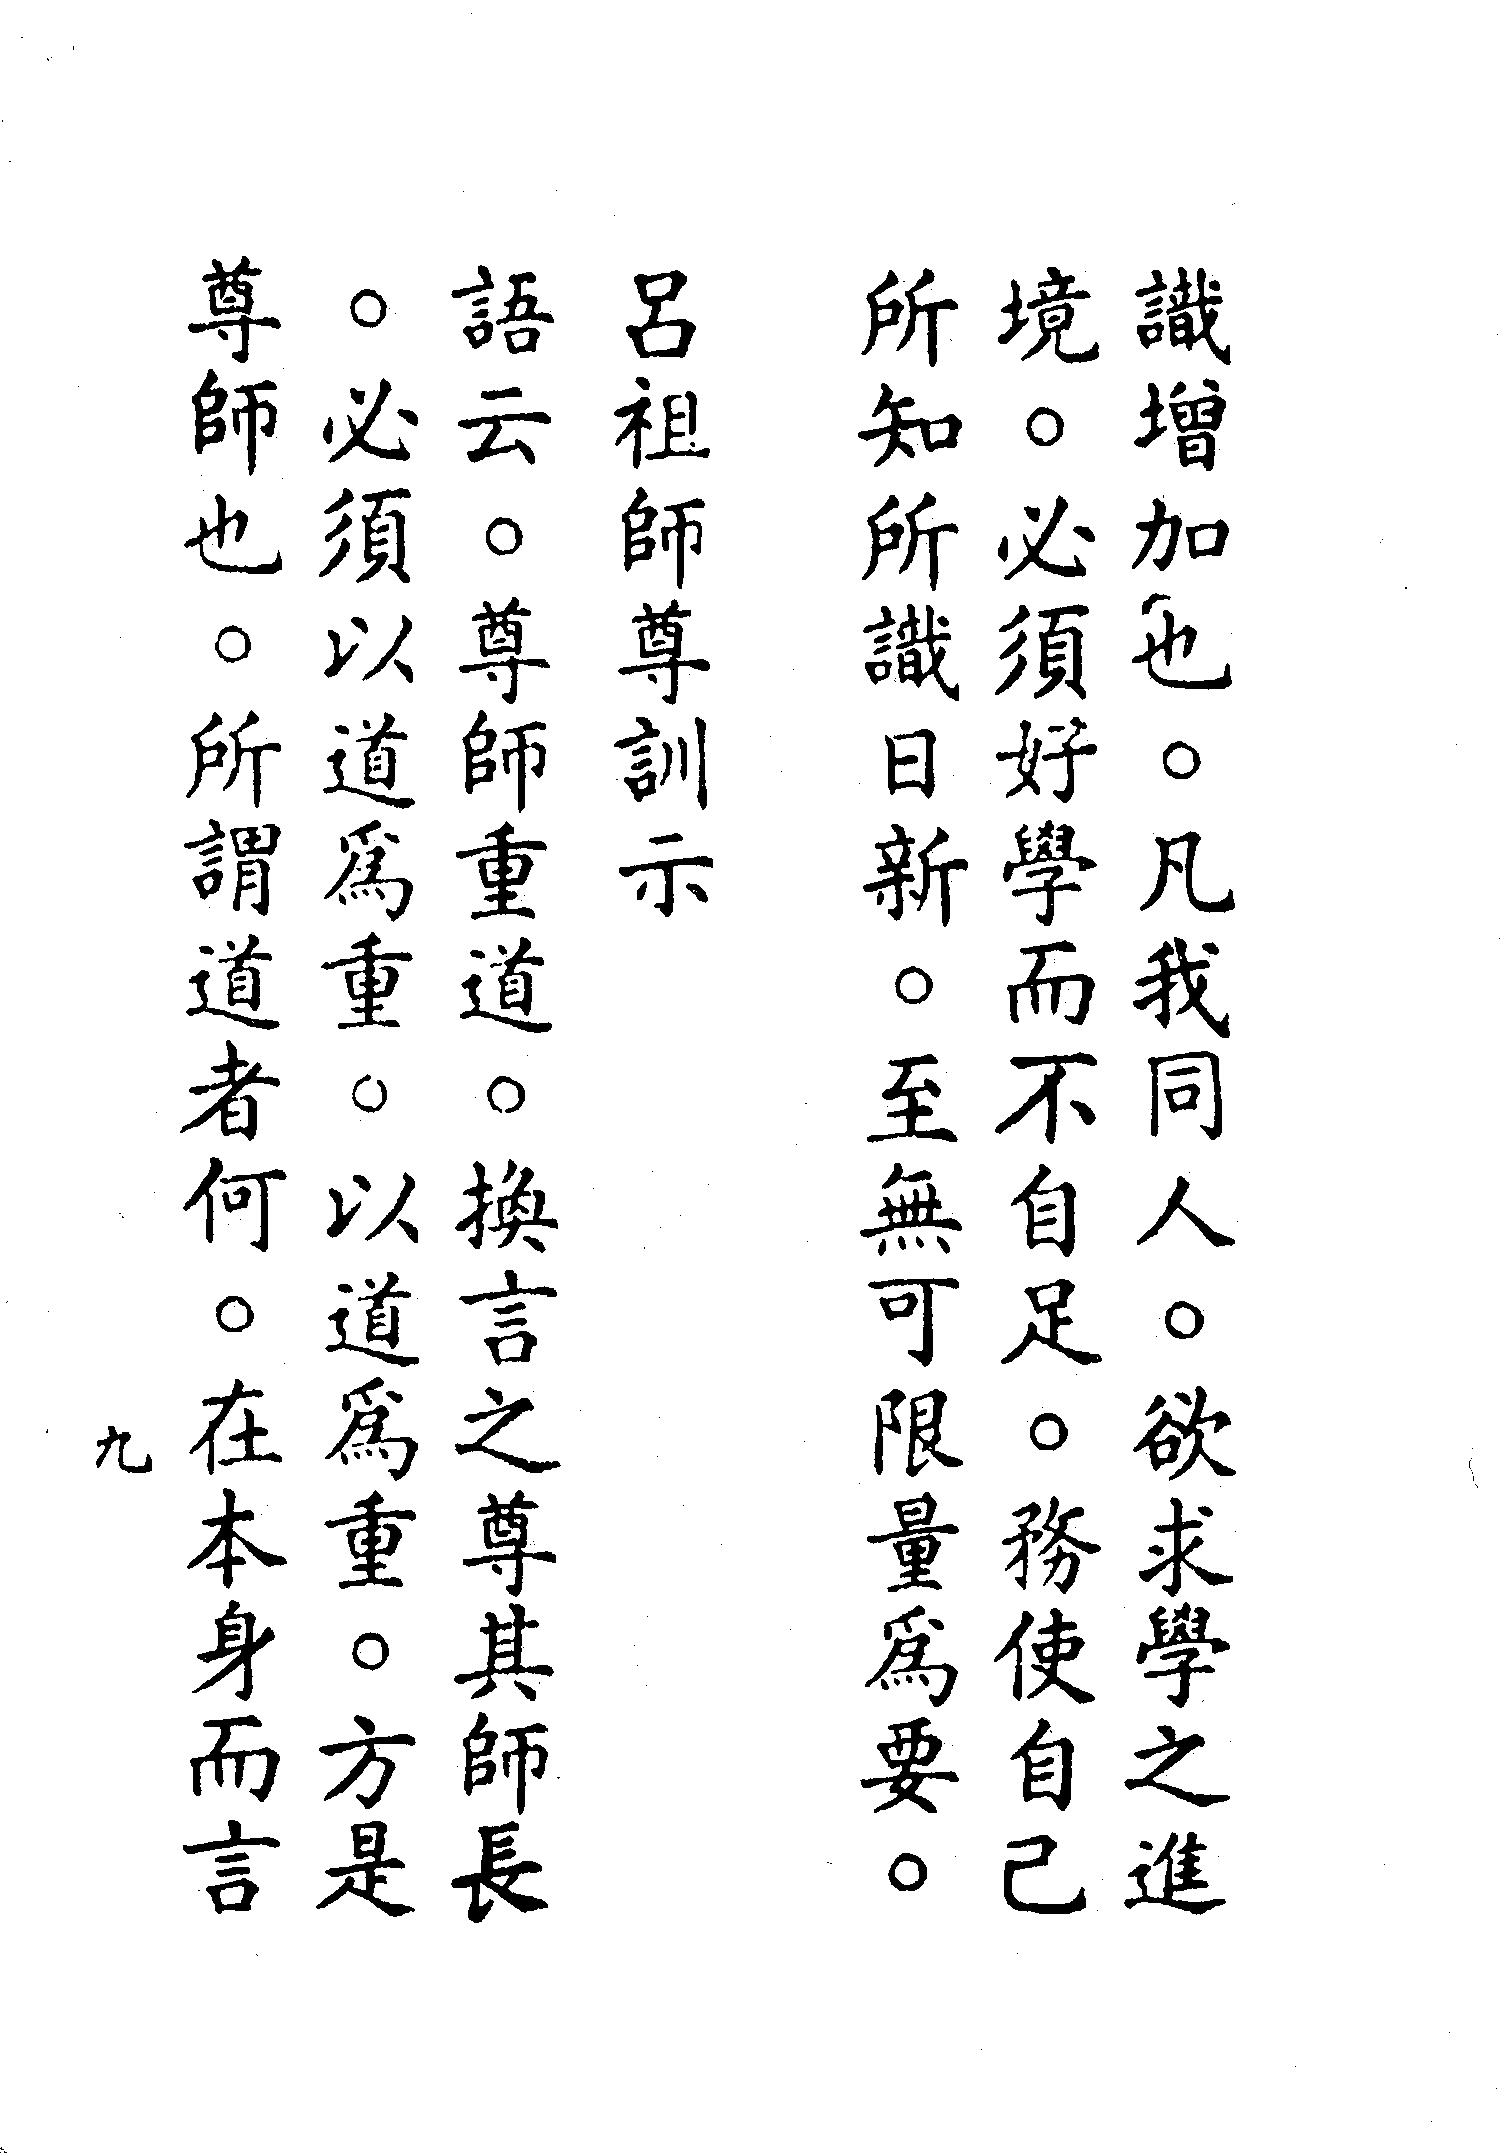 識增加也。凡我同人。欲求學之進
境。必須好學而不自足。務使自己
所知所識日新。至無可限量爲要。
呂祖師尊訓示
語云。尊師重道。換言之尊其師長
。必須以道爲重。以道爲重。方是
尊師也。所謂道者何。在本身而言
九